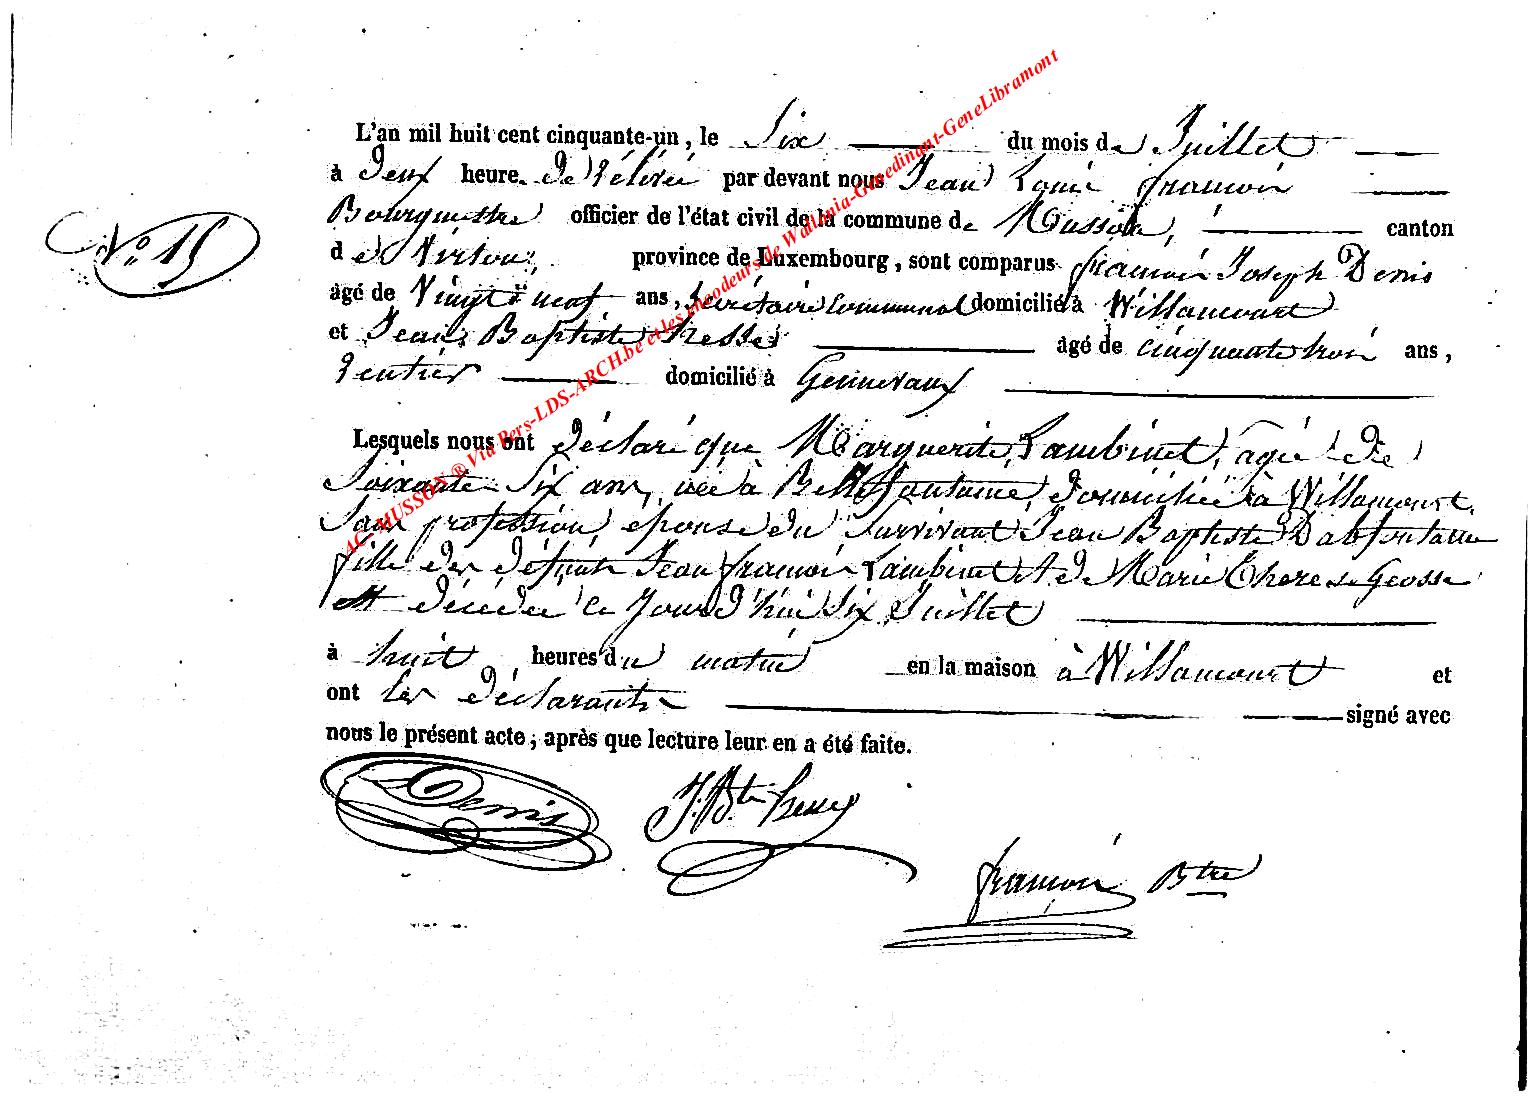 L'an mil huit cent cinquante-un, le Six du mois de Juillet
à deux heure. de rélévée par devant nous Jean Louis françois
Bourgmestre officier de l'état civil de la commune de Musson, canton
de Virton, province de Luxembourg, sont comparus françois Joseph Denis
âgé de Vingt neuf ans, Secrétaire Communal domicilié à Willancourt
et Jean Baptiste hesse âgé de cinquante trois ans,
rentier domicilié à Gennevaux
N.o 15
Lesquels nous ont déclaré que Marguerite Lambinet, agée de
Soixante Six ans, née à Bellefontaine, domiciliée à Willancourt,
Sans profession, épouse du Survivant Jean Baptiste Dabfontaine
fille des défunts Jean françois Lambinet et de Marie Thérese Geosse
est décédée ce Jour d'hui Six Juillet
à huit heures du matin en la maison à Willancourt et
ont les déclarants signé avec
nous le présent acte, après que lecture leur en a été faite.
Denis J. Bte hesse
françois Btre
AC-MUSSON ® Via Bers-LDS-ARCH.be et les encodeurs de Wallonia-Genedinant-GeneLibramont